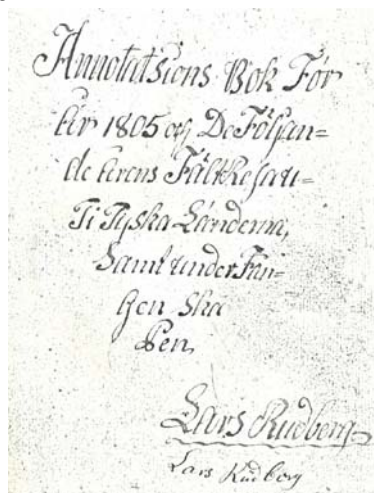 Annotatsions Bok För
År 1805 och De Följan=
de Årens Fälttåg
Ti Tyska Länderna,
Samt under Fån=
gen Ska
Pen,
Lars Rudberg
Lars Rudberg